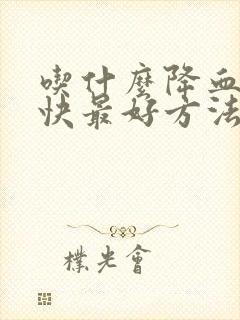 喫什麼降血
快最好方法
樸光會